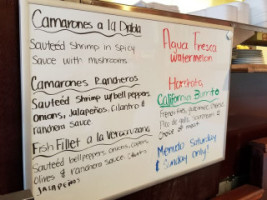 Camarones a la Diabla
Sauteéd Shrimp in Spicy
Sauce with mushrooms
Camarones Rancheros
Sauteéd Shrimp w/bell peppers,
onions, Jalapeños, cilantro &
ranchera sauce
Fish Fillet a la Veracruzana
Sauteéd bell peppers, onions, capers,
olives & ranchera sauce
JALAPEÑOS
Agua Fresca
Watermelon
Horchata
California Burrito
Pico de gallo,
choice of meat
Menudo Saturday
& Sunday only!